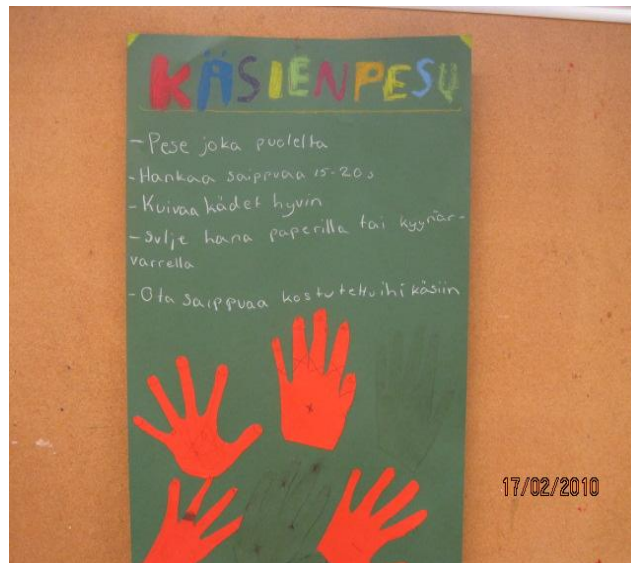 KÄSIENPESU
-Pese joka puolelta
-Hankaa saippuaa 15-20s
-Kuivaa kädet hyvin
-Sulje hana paperilla tai kyynär-
varrella
-Ota saippuaa kostutettuihi käsiin
17/02/2010